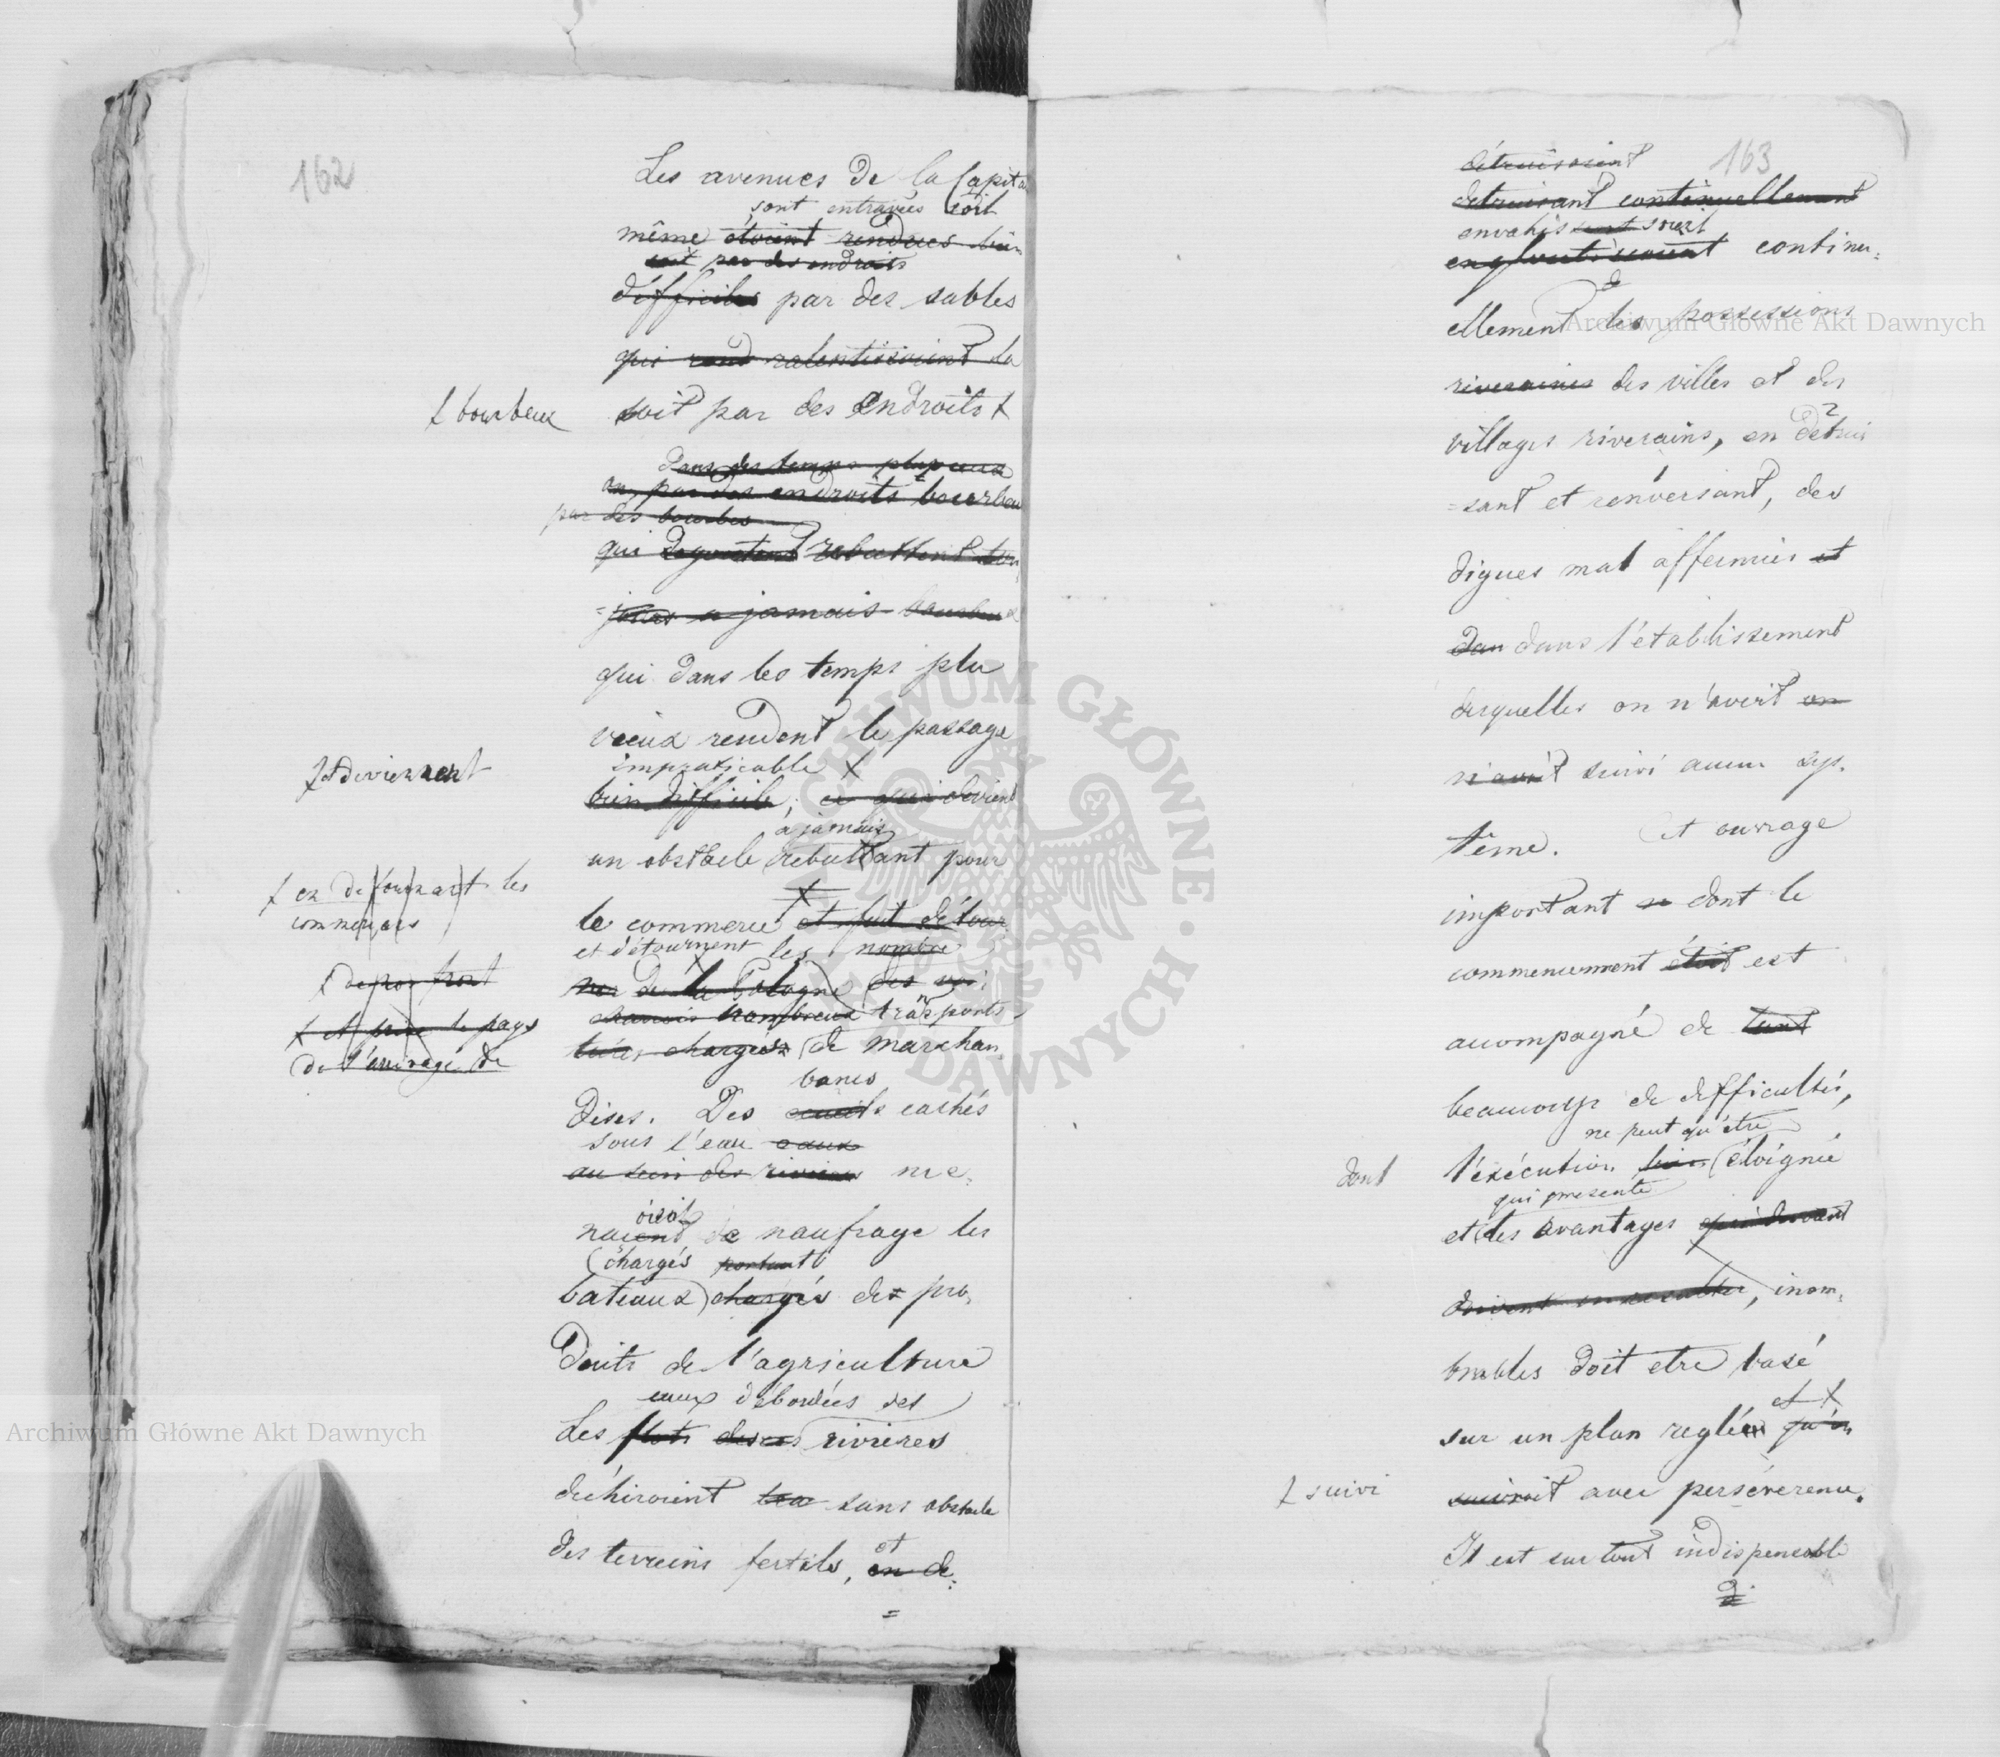 162
Les avenues de la Capita
sont entravées soit
même étoient rendues bien
soit par des endroits
difficiles par des sables
qui rend ralentissoient la
ƚ bourbeux
soit par des endroits ƚ
Dans des temps plupieux
ou, par des endroits bourbeu
par des bourbes
qui degoutent rebuttent tou
=jours a jamais bourbeux
qui dans les temps plu
vieux rendent le passage
impraticable ƚ
ƚ et deviennent
bien difficile, ce qui devient
à jamais
un obstacle rebuttant pour
ƚ en detournant les
commerces
le commerce et fait détour
et détournent les nombre
ƚ de la Pologne des voi
nombreux transports
ƚ et prive le pays
de l'avantage de
tures chargées de marchan
bancs
dises. Des ecueils cachés
sous l'eau eaux
au sein des rivieres me=
oient
naient de naufrage les
chargés portant
bateaux chargés des pro=
duits de l'agriculture
eaux débordées des
Les flots des rivieres
déchiroient sans obstacle
des terreins fertils, et en de=
=
163
détruisoient
detruisant continuellement
envahissent soient
engloutissoient continu=
de
ellement les possessions
riveraines des villes et des
villages riverains, en détrui
=sant et renversant, des
digues mal affermies et
dan dans l'établissement
desquelles on n'avoit on
n'avoit suivi aucun sys=
tême. Cet ouvrage
important se dont le
commencement étoit est
accompagné de tant
beaucoup de difficultés,
ne peut qu'être
dont
l'exécution bien éloignée
qui presente
et des avantages qui doivent
doivent en resulter, inom=
brables doit etre basé
et ƚ
sur un plan reglé qu'on
ƚ suivi
suivroit avec persévérence.
Il est sur tout indispensable
Archiwum Główne Akt Dawnych
Archiwum Główne Akt Dawnych
ARCHIWUM GŁÓWNE AKT DAWNYCH